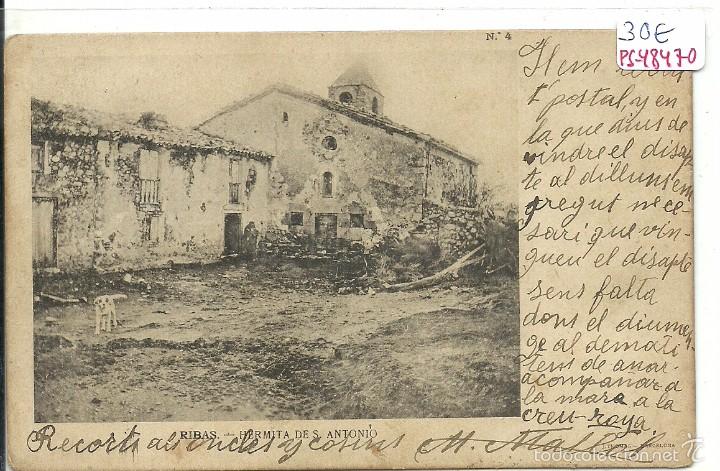 N.º 4
30€
PS-48470
Hem rebut
t' postal, y en
la que dius de
vindre el disap
te al dilluns em
pregut nece-
sari que vin-
gueu el disapte
sens falta
dons el diumen-
ge al demati
tens de anar
acompañar a
la mara a la
creu-roya.
RIBAS. — HERMITA DE S. ANTONIO
BARCELONA
Recorts als oncles y cosins M.
todocoleccion.net